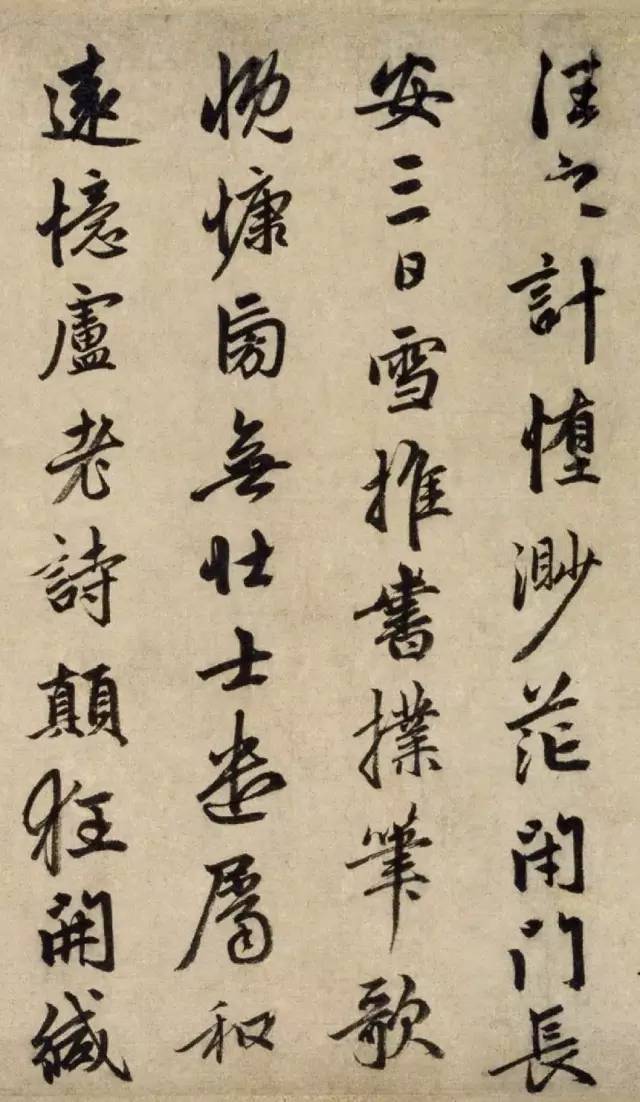 湟之計墮渺茫閉門長
安三日雪推書撲筆歌
慨慷旁無壯士遣屬和
遠憶盧老詩顛狂開緘